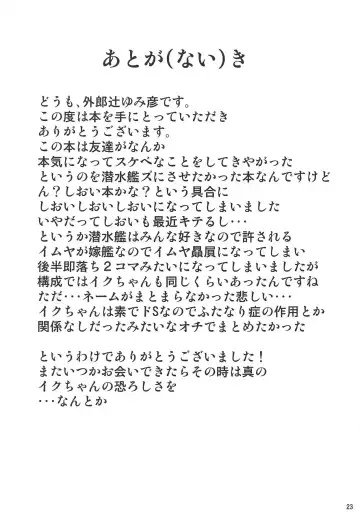 あとが(ない)き
どうも、外郎辻ゆみ彦です。
この度は本を手にとっていただき
ありがとうございます。
この本は友達がなんか
本気になってスケベなことをしてきやがった
というのを潜水艦ズにさせたかった本なんですけど
ん？しおい本かな？という具合に
しおいしおいしおいになってしまいました
いやだってしおいも最近キテるし･･･
というか潜水艦はみんな好きなので許される
イムヤが嫁艦なのでイムヤ贔屓になってしまい
後半即落ち２コマみたいになってしまいましたが
構成ではイクちゃんも同じくらいあったんですね
ただ･･･ネームがまとまらなかった悲しい･･･
イクちゃんは素でドSなのでふたなり症の作用とか
関係なしだったみたいなオチでまとめたかった
というわけでありがとうございました！
またいつかお会いできたらその時は真の
イクちゃんの恐ろしさを
･･･なんとか
23